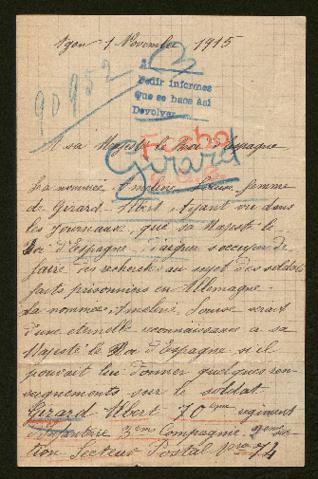 Lyon 1 Novembre 1915
90952
Pedir informes
que se hace así
Devolver
Fecho
Girard
A sa Majesté le Roi d'Espagne
La nommée Amelini Louise femme
de Girard Albert, ayant vu dans
les Journaux, que sa Majesté le
Roi d'Espagne daigne s'occuper de
faire des recherches au sujet des soldats
faits prisonniers en Allemagne
La nommée Amelini, Louise serait
d'une eternelle reconnaissance a sa
Majesté le Roi d'Espagne si il
pouvait lui donner quelques ren-
seignements sur le soldat
Girard Albert 70eme regiment
d'infanterie 3eme Compagnie 2eme sec-
tion Secteur Postal no 74